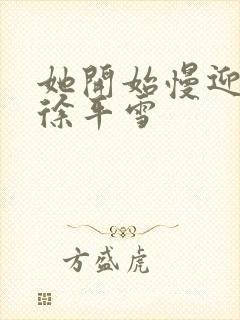 她開始慢迎
徐年雪
方盛虎